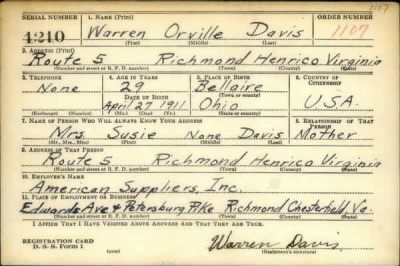 1107
SERIAL NUMBER 1. NAME (Print) ORDER NUMBER
1210 Warren Orville Davis 1107
(First) (Middle) (Last)
2. ADDRESS (Print)
Route 5 Richmond Henrico Virginia
(Number and street or R. F. D. number) (Town) (County) (State)
3. TELEPHONE 4. AGE IN YEARS 5. PLACE OF BIRTH 6. COUNTRY OF CITIZENSHIP
None 29 Bellaire
DATE OF BIRTH (Town or county)
April 27 1911 Ohio U.S.A.
(Exchange) (Number) (Mo.) (Day) (Yr.) (State or country)
7. NAME OF PERSON WHO WILL ALWAYS KNOW YOUR ADDRESS 8. RELATIONSHIP OF THAT PERSON
Mrs. Susie None Davis Mother
(Mr., Mrs., Miss) (First) (Middle) (Last)
9. ADDRESS OF THAT PERSON
Route 5 Richmond Henrico Virginia
(Number and street or R. F. D. number) (Town) (County) (State)
10. EMPLOYER'S NAME
American Suppliers, Inc.
11. PLACE OF EMPLOYMENT OR BUSINESS
Edwards Ave & Petersburg Pike Richmond Chesterfield, Va.
(Number and street or R. F. D. number) (Town) (County) (State)
I AFFIRM THAT I HAVE VERIFIED ABOVE ANSWERS AND THAT THEY ARE TRUE.
REGISTRATION CARD
D. S. S. Form 1 Warren Davis
(Registrant's signature)